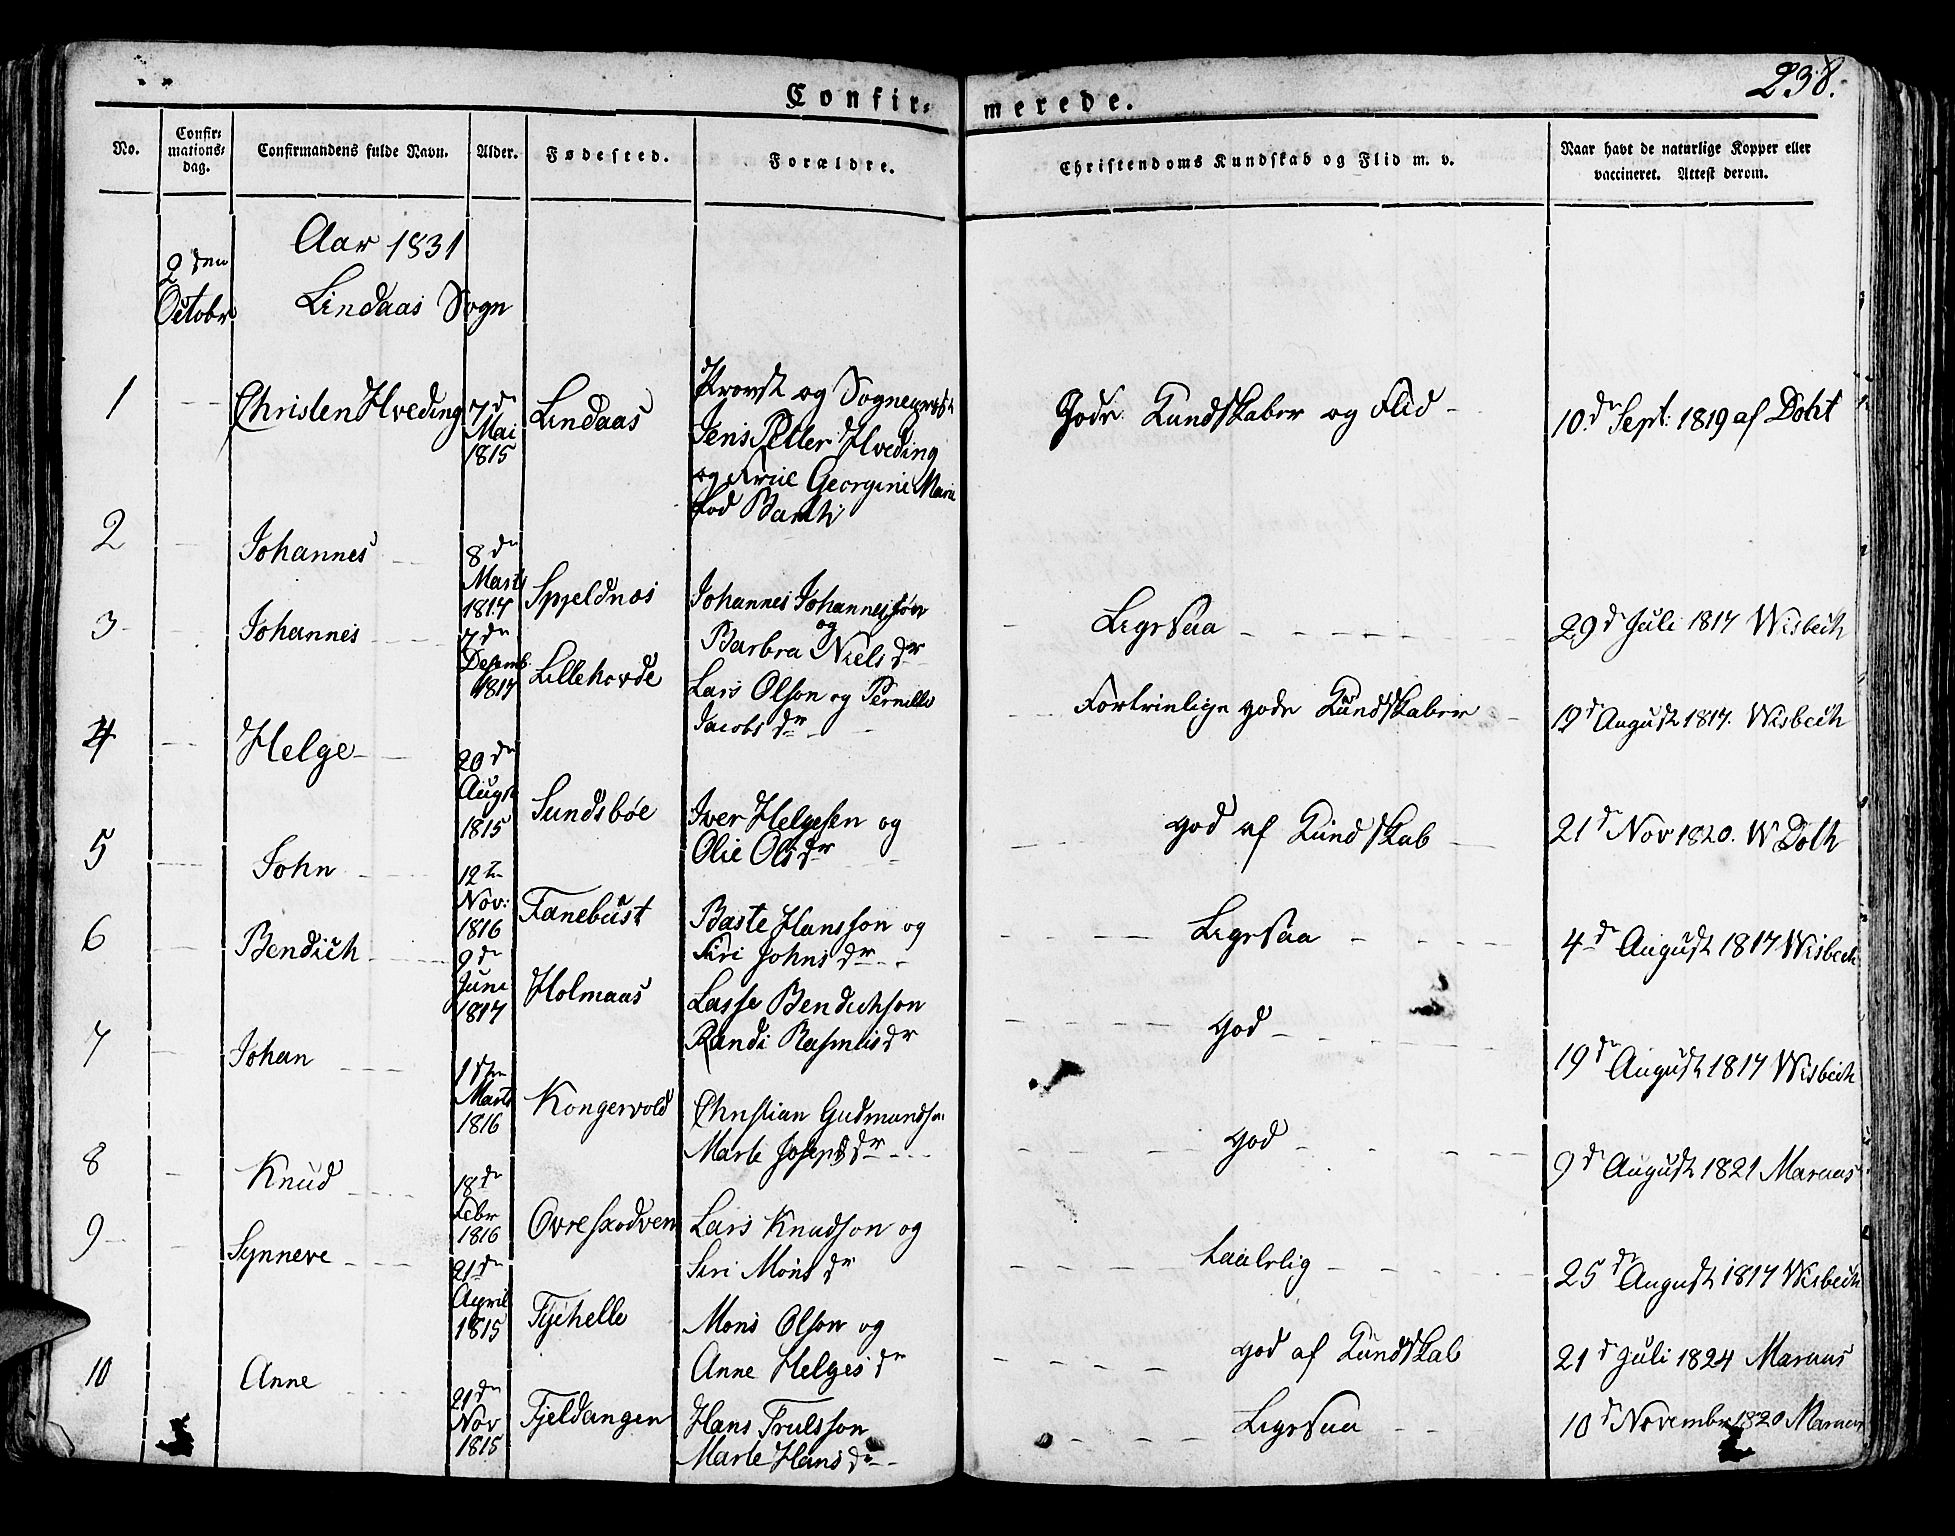 238.
Confir= merede.
No. Confir= mations= dag. Confirmandens fulde Navn. Alder. Fødested. Forældre. Christendoms Kundskab og Flid m. v. Naar havt de naturlige Kopper eller vaccineret. Attest derom.
Aar 1831
2den Octobr Lindaas Sogn
1 Christen Hveding 7de Mai 1815 Lindaas Provst og Sognepræst
Jens Petter Hveding
og Frue Georgine Marie
fød Barth
Gode Kundskaber og Flid 10de Sept: 1819 af Doht
2 Johannes 8de Marts 1817 Spjeldnæs Johannes Johannessøn
og
Barbra Niels dr
Ligesaa 29d Juli 1817 Wisbech
3 Johannes 7de Desemb. 1817 Lillehovde Lars Olson og Pernille
Jacobs dr
Fortrinlige gode Kundskaber 19d August 1817. Wisbech
4 Helge 20de Augst 1815 Sundsbøe Iver Helgesen og
Olie Ols dr
god af Kundskab 21d Nov 1820. W Doth
5 John 12te Nov: 1816 Fanebust Baste Hansson og
Siri Johns dr
Ligesaa 4de August 1817 Wisbech
6 Bendich 9de Juni 1817 Holmaas Lasse Bendichson
Randi Rasmus dr
god 19de August 1817 Wisbech
7 Johan 1ste Marts 1816 Kongevold Christian Gudmundsen
Marte Joseps dr
god 9d August 1821 Maraus
8 Knud 18de Febr 1816 Ovreskodven Lars Knudson og
Siri Mons dr
taalelig 25de August 1817 Wisbech
9 Synneve 21de April 1815 Fyehelle Mons Olson og
Anne Helges dr
god af Kundskab 21d Juli 1824 Maraus
10 Anne 21de Nov 1815 Fjeldangen Hans Trulsson
Marte Hans dr
Ligesaa 10d Novembr 1820 Maraus